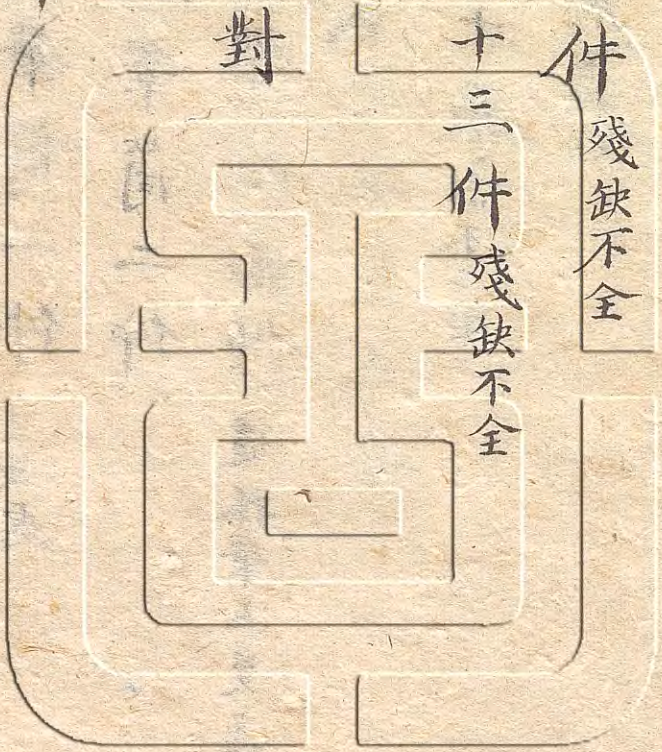 件殘缺不全
十三件殘缺不全
對